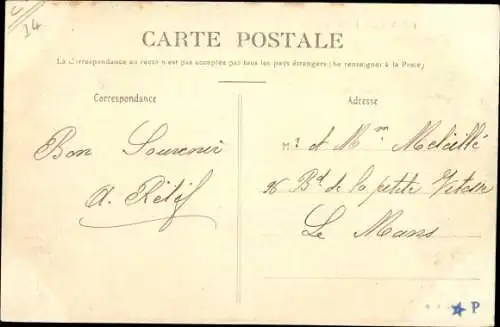 14
CARTE POSTALE
La Correspondance au recto n'est pas acceptée par tous les pays étrangers (Se renseigner à la Poste)
Correspondance
Adresse
Bon Souvenir
A. Rétif
Mr et Mme
Bd de la petite
Le Mans
P